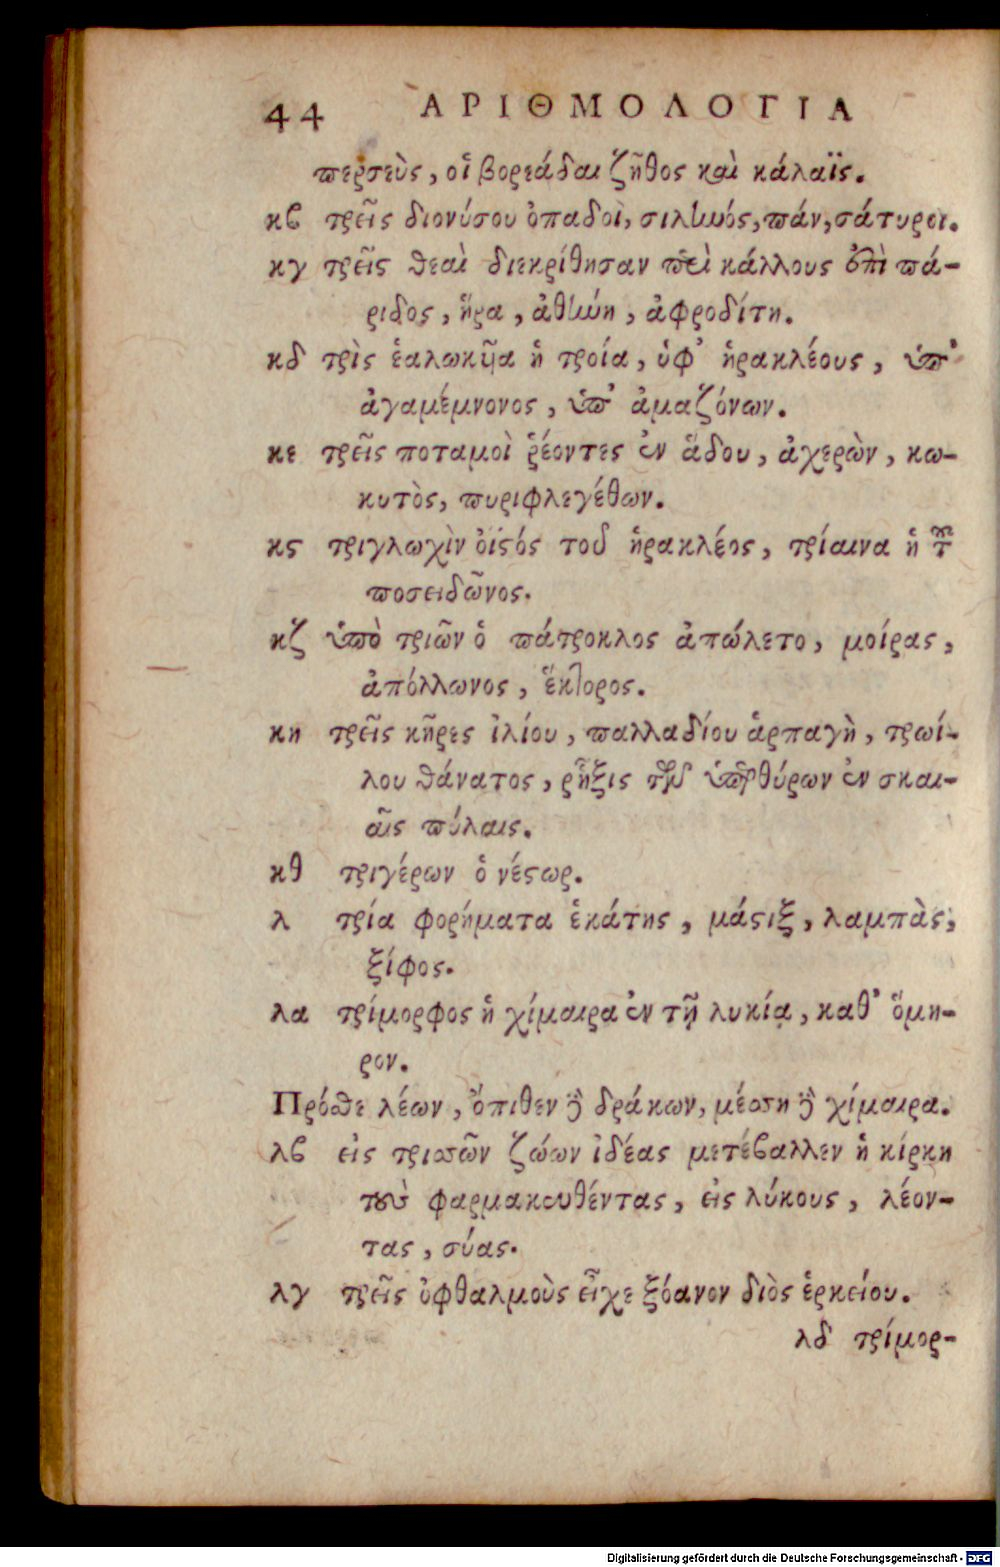 44 ΑΡΙΘΜΟΛΟΓΙΑ
περσεὺς, οἱ βορεάδαι ζῆθος καὶ κάλαϊς.
κβ τρεῖς διονύσου ὀπαδοὶ, σιληνός, πάν, σάτυροι.
κγ τρεῖς θεαὶ διεκρίθησαν περὶ κάλλους ἐπὶ πά-
ριδος, ἥρα, ἀθήνη, ἀφροδίτη.
κδ τρὶς ἑαλωκυῖα ἡ τροία, ὑφ᾽ ἡρακλέους, ὑπ᾽
ἀγαμέμνονος, ὑπ᾽ ἀμαζόνων.
κε τρεῖς ποταμοὶ ῥέοντες ἐν ἅδου, ἀχερὼν, κω-
κυτὸς, πυριφλεγέθων.
κϛ τριγλωχὶν ὀϊστός τοῦ ἡρακλέος, τρίαινα ἡ τοῦ
ποσειδῶνος.
κζ ὑπὸ τριῶν ὁ πάτροκλος ἀπώλετο, μοίρας,
ἀπόλλωνος, ἕκτορος.
κη τρεῖς κῆρες ἰλίου, παλλαδίου ἁρπαγὴ, τρωί-
λου θάνατος, ῥῆξις τῶν ὑπερθύρων ἐν σκαι-
αῖς πύλαις.
κθ τριγέρων ὁ νέστωρ.
λ τρία φορήματα ἑκάτης, μάστιξ, λαμπὰς,
ξίφος.
λα τρίμορφος ἡ χίμαιρα ἐν τῇ λυκίᾳ, καθ᾽ ὅμη-
ρον.
Πρόσθε λέων, ὄπιθεν δὲ δράκων, μέσση δὲ χίμαιρα.
λβ εἰς τρισσῶν ζώων ἰδέας μετέβαλλεν ἡ κίρκη
τοὺς φαρμακευθέντας, εἰς λύκους, λέον-
τας, σύας.
λγ τρεῖς ὀφθαλμοὺς εἶχε ξόανον διὸς ἑρκείου.
λδ τρίμορ-
Digitalisierung gefördert durch die Deutsche Forschungsgemeinschaft - DFG